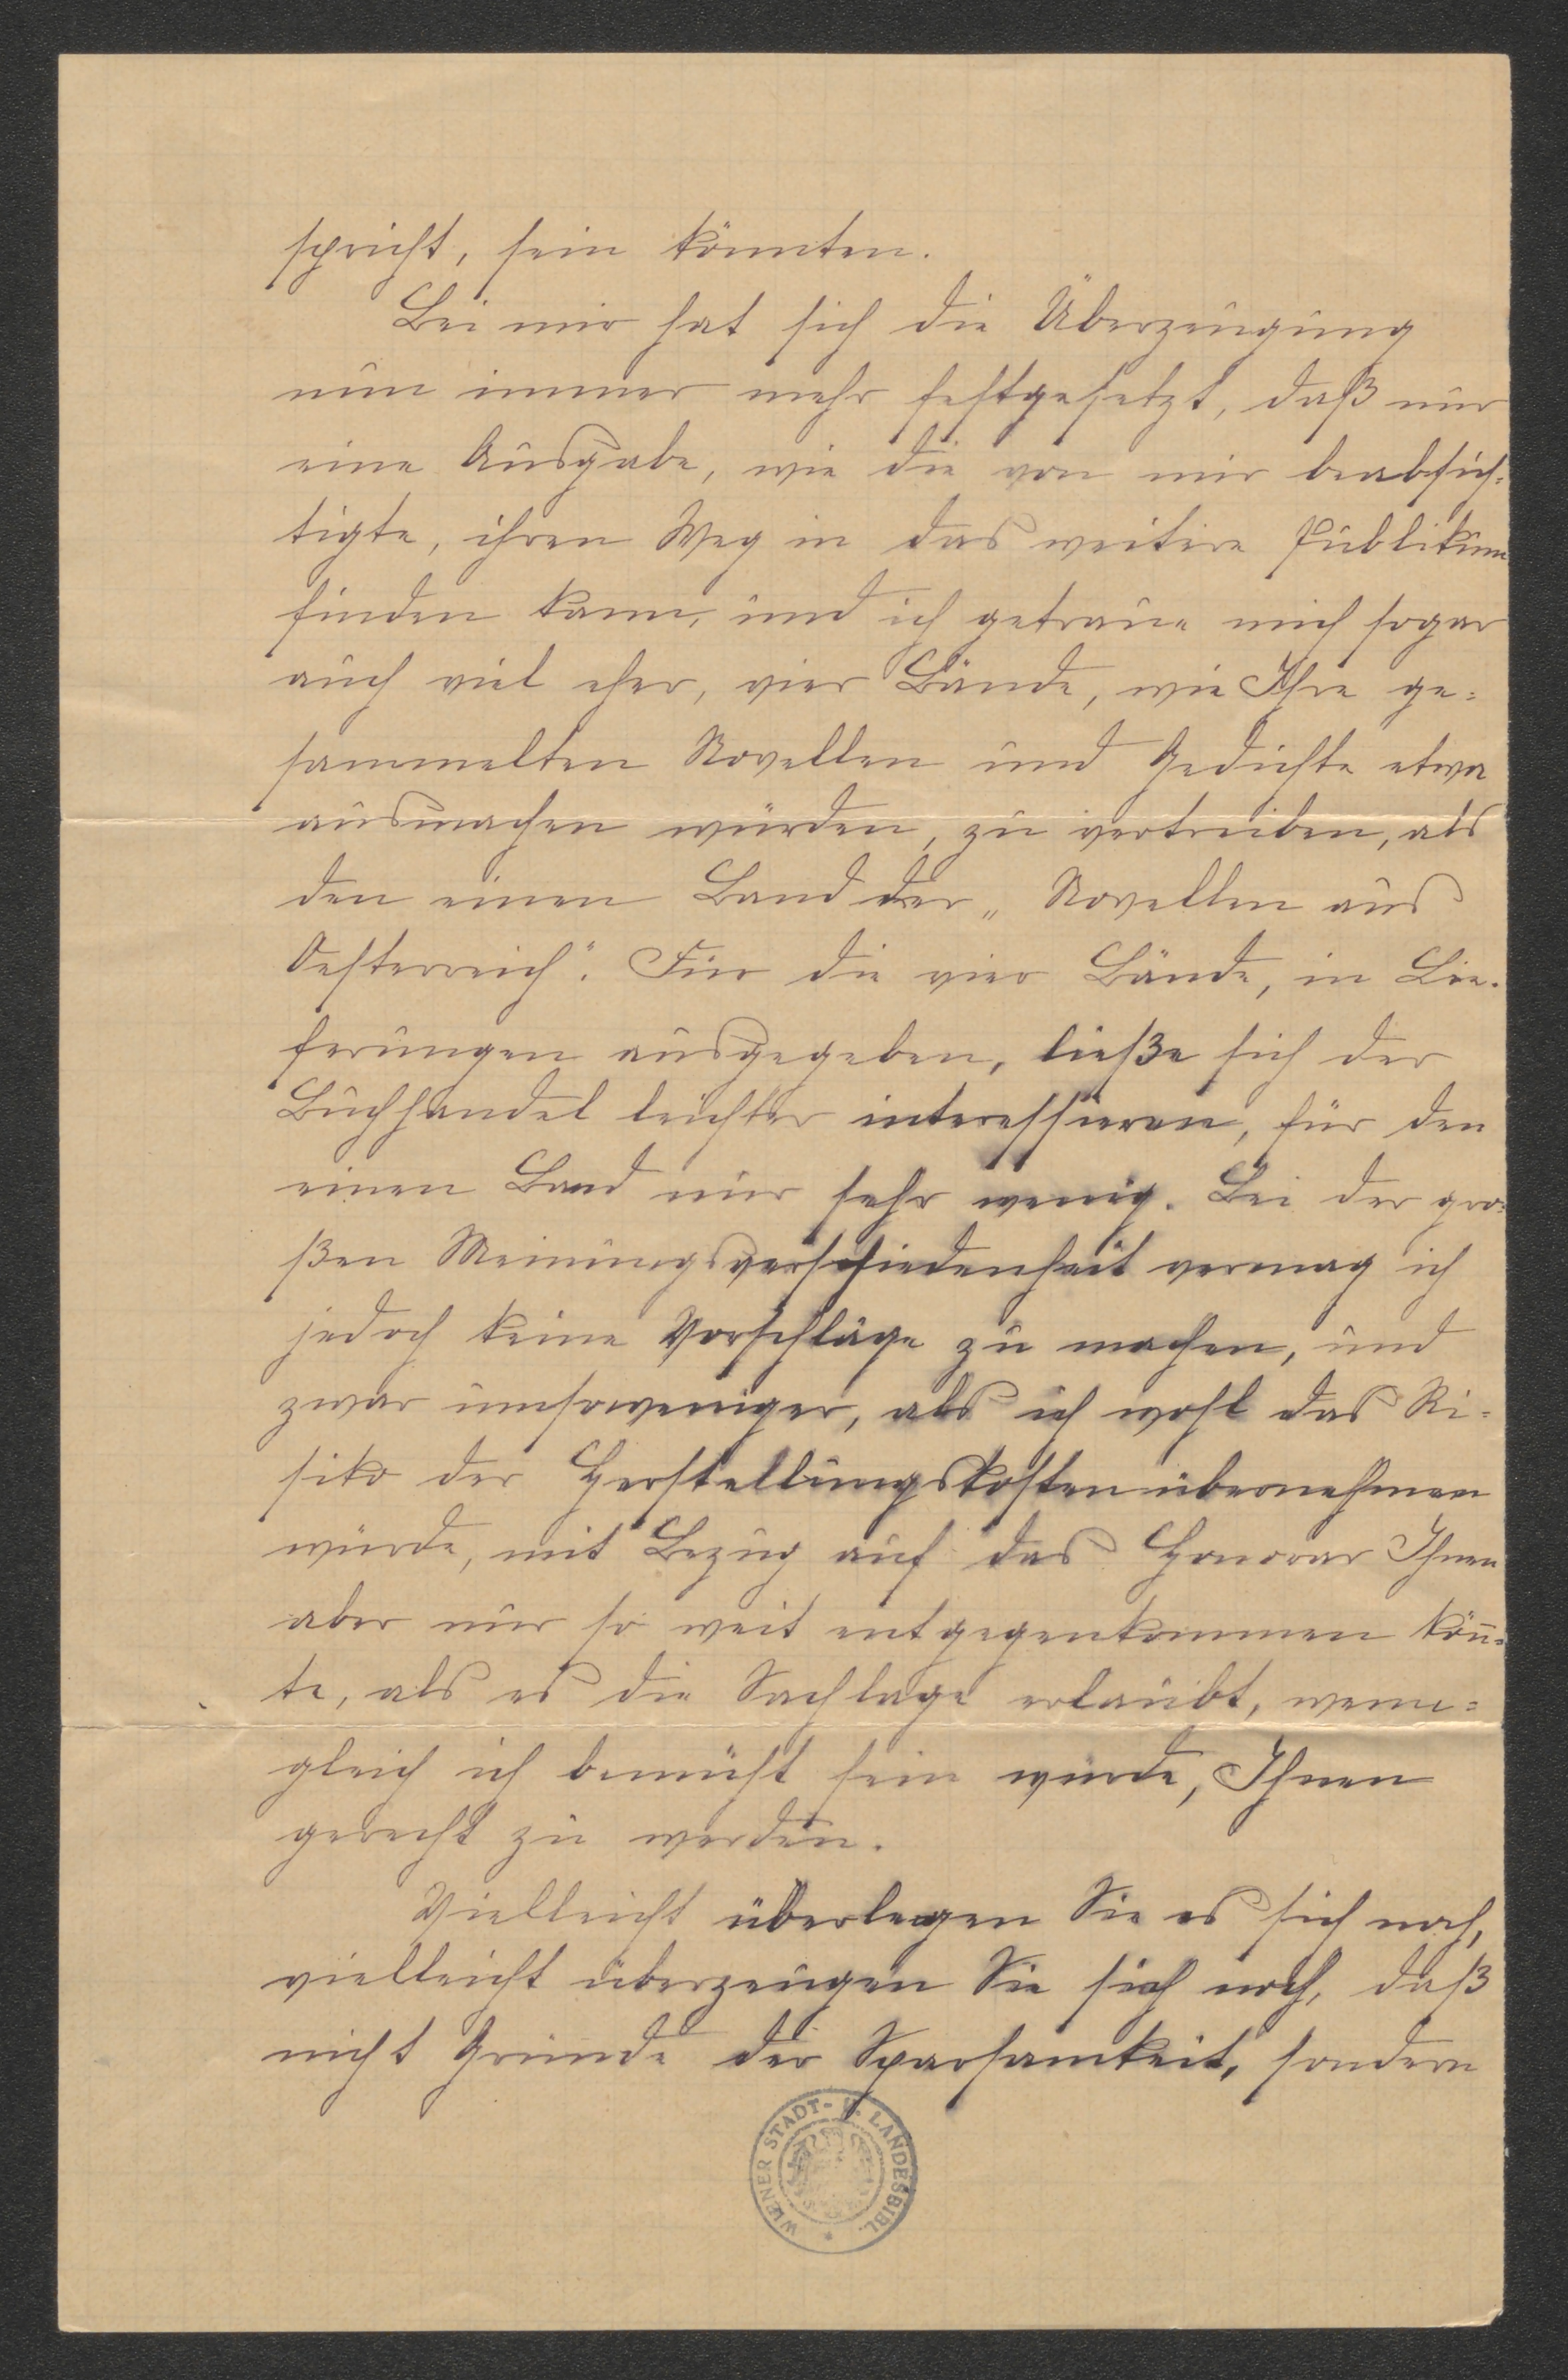 spricht, sein könnten.
Bei mir hat sich die Überzeugung
nun immer mehr festgesetzt, daß nur
eine Ausgabe, wie die von mir beabsich-
tigte, ihren Weg in das weitere Publikum
finden kann, und ich getraue mich sogar
auch viel eher, vier Bände, wie Ihre ge-
sammelten Novellen und Gedichte etwa
ausmachen würden, zu vertreiben, als
den einen Band der „Novellen aus
Oesterreich“. Für die vier Bände, in Lie-
ferungen ausgegeben, ließe sich der
Buchhandel leichter interessieren, für den
einen Band nur sehr wenig. Bei der gro-
ßen Meinungsverschiedenheit vermag ich
jedoch keine Vorschläge zu machen, und
zwar umsoweniger, als ich wohl das Ri-
siko der Herstellungskosten übernehmen
würde, mit Bezug auf das Honorar Ihnen
aber nur so weit entgegenkommen kön̄-
te, als es die Sachlage erlaubt, wenn-
gleich ich bemüht sein würde, Ihnen
gerecht zu werden.
Vielleicht überlegen Sie es sich noch,
vielleicht überzeugen Sie sich noch, daß
nicht Gründe der Sparsamkeit, sondern
WIENER STADT- U. LANDESBIBL.